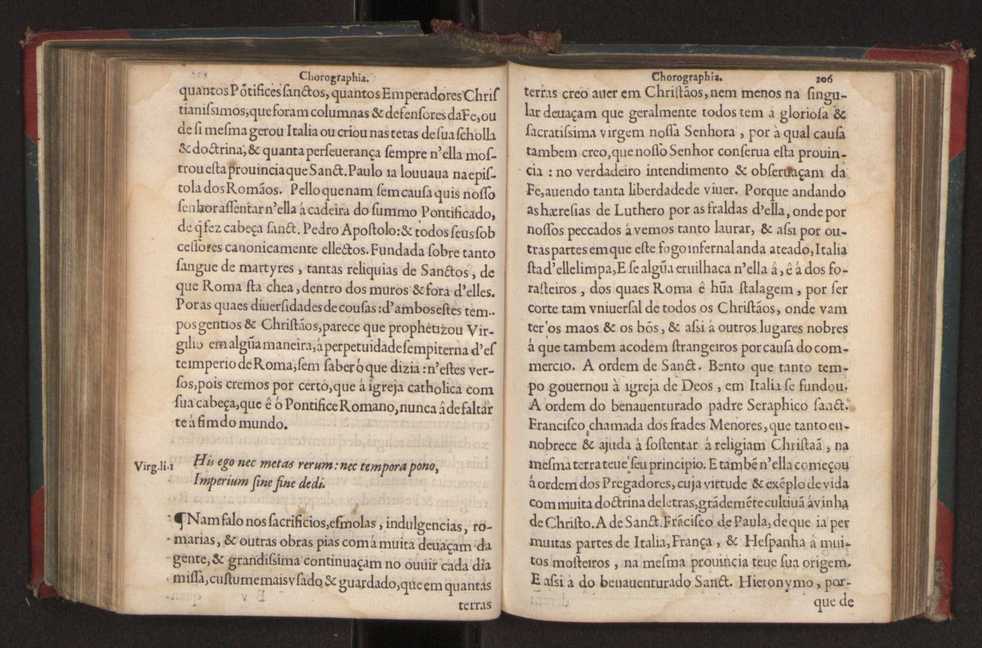 Chorographia.
quantos Põtifices sanctos, quantos Emperadores Chris
tianissimos, que foram columnas & defensores da Fe, ou
de si mesma gerou Italia ou criou nas tetas de sua scholla
& doctrina, & quanta perseuerança sempre n'ella mos-
trou esta prouincia que Sanct. Paulo ia louuaua na epis-
tola dos Romãos. Pello que nam sem causa quis nosso
senhor assentar n'ella á cadeira do summo Pontificado,
de q̃ fez cabeça sanct. Pedro Apostolo: & todos seus sob
cessores canonicamente ellectos. Fundada sobre tanto
sangue de martyres, tantas reliquias de Sanctos, de
que Roma sta chea, dentro dos muros & fora d'elles.
Por as quaes diuersidades de cousas: d'ambos estes tem-
pos gentios & Christãos, parece que prophetizou Vir-
gilio em algũa maneira, á perpetuidade sempiterna d'es
te imperio de Roma, sem saber ó que dizia: n'estes ver-
sos, pois cremos por certo, que á igreja catholica com
sua cabeça, que ê ó Pontifice Romano, nunca â de faltar
te á fim do mundo.
Virg. li. 1 His ego nec metas rerum: nec tempora pono,
Imperium sine fine dedi.
¶ Nam falo nos sacrificios, esmolas, indulgencias, ro-
marias, & outras obras pias com á muita deuaçam da
gente, & grandissima continuaçam no ouuir cada dia
missa, custume mais vsado & guardado, que em quantas
terras
Chorographia. 206
terras creo auer em Christãos, nem menos na singu-
lar deuaçam que geralmente todos tem á gloriosa &
sacratissima virgem nossa Senhora, por à qual causa
tambem creo, que nosso Senhor conserua esta prouin-
cia: no verdadeiro intendimento & obseruaçam da
Fe, auendo tanta liberdade de viuer. Porque andando
as hæresias de Luthero por as fraldas d'ella, onde por
nossos peccados á vemos tanto laurar, & assi por ou-
tras partes em que este fogo infernal anda ateado, Italia
sta d'elle limpa, E se algũa eruilhaca n'ella â, ê á dos fo-
rasteiros, dos quaes Roma ê hũa stalagem, por ser
corte tam vniuersal de todos os Christãos, onde vam
ter os maos & os bõs, & assi á outros lugares nobres
á que tambem acodem strangeiros por causa do com-
mercio. A ordem de Sanct. Bento que tanto tem-
po gouernou á igreja de Deos, em Italia se fundou.
A ordem do benauenturado padre Seraphico sanct.
Francisco, chamada dos frades Menores, que tanto en-
nobrece & ajuda á sostentar á religiam Christaã, na
mesma terra teue seu principio. E tambẽ n'ella começou
à ordem dos Pregadores, cuja virtude & exẽplo de vida
com muita doctrina de letras, grãdemẽte cultiuã á vinha
de Christo. A de Sanct. Frãcisco de Paula, de que ia per
muitas partes de Italia, França, & Hespanha á mui-
tos mosteiros, na mesma prouincia teue sua origem.
E assi á do benauenturado Sanct. Hieronymo, por-
que de